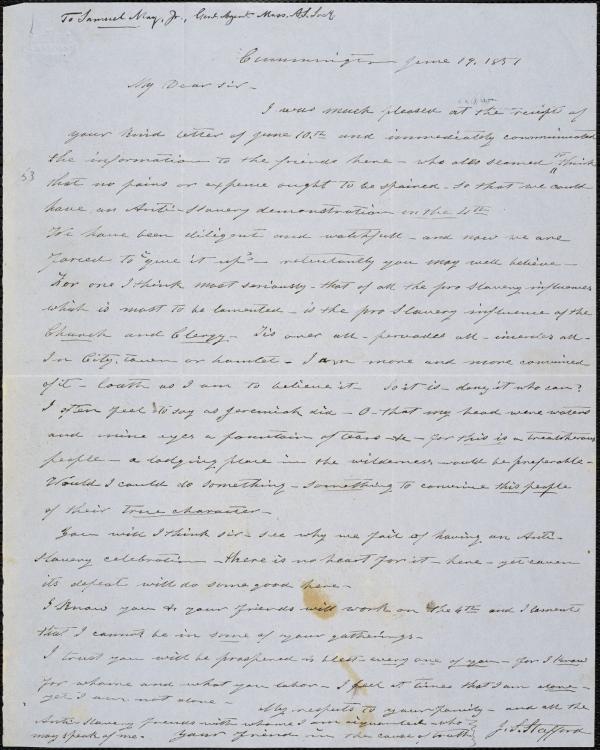 To Samuel May, Jr., Genl. Agent. Mass. A.S. Soc.
Cummington June 19. 1851
My Dear Sir -
I was much pleased at the reciept of
your kind letter of June 10.th and immediately communicated
the information to the friends here - who also seamed to think
53
that no pains or expence ought to be spaired - so that we could
have an Anti-Slavery demonstration on the 4th
We have been diligent and watchfull - and now we are
forced to "give it up" - reluctantly you may well believe -
For one I think most seriously - that of all the pro slavery influences
which is most to be lamented - is the pro Slavery influence of the
Church and Clergy. Tis over all - pervades all - all -
In City, town or hamlet - I am more and more convinced
of it - loath as I am to believe it - So it is - deny it who can?
I often feel to say as Jeremiah did - O - that my head were waters
and mine eyes a fountain of tears &c - for this is a treatcherous
people - a lodging place in the wilderness would be preferable -
Would I could do something - something to convince this people
of their true character -
You will I think sir - see why we fail of having an Anti-
Slavery celebration - there is no heart for it - here - yet eaven
its defeat will do some good here -
I know you & your friends will work on the 4th and I lament
that I cannot be in some of your gatherings -
I trust you will be prospered is blest every one of you - for I know
for whome and what you labor - I feel at times that I am alone -
yet I am not alone - My respects to your family - and all the
Anti-Slavery friends with whome I am aquainted who
may speak of me. Your friend in the cause of truth J. S. Stafford